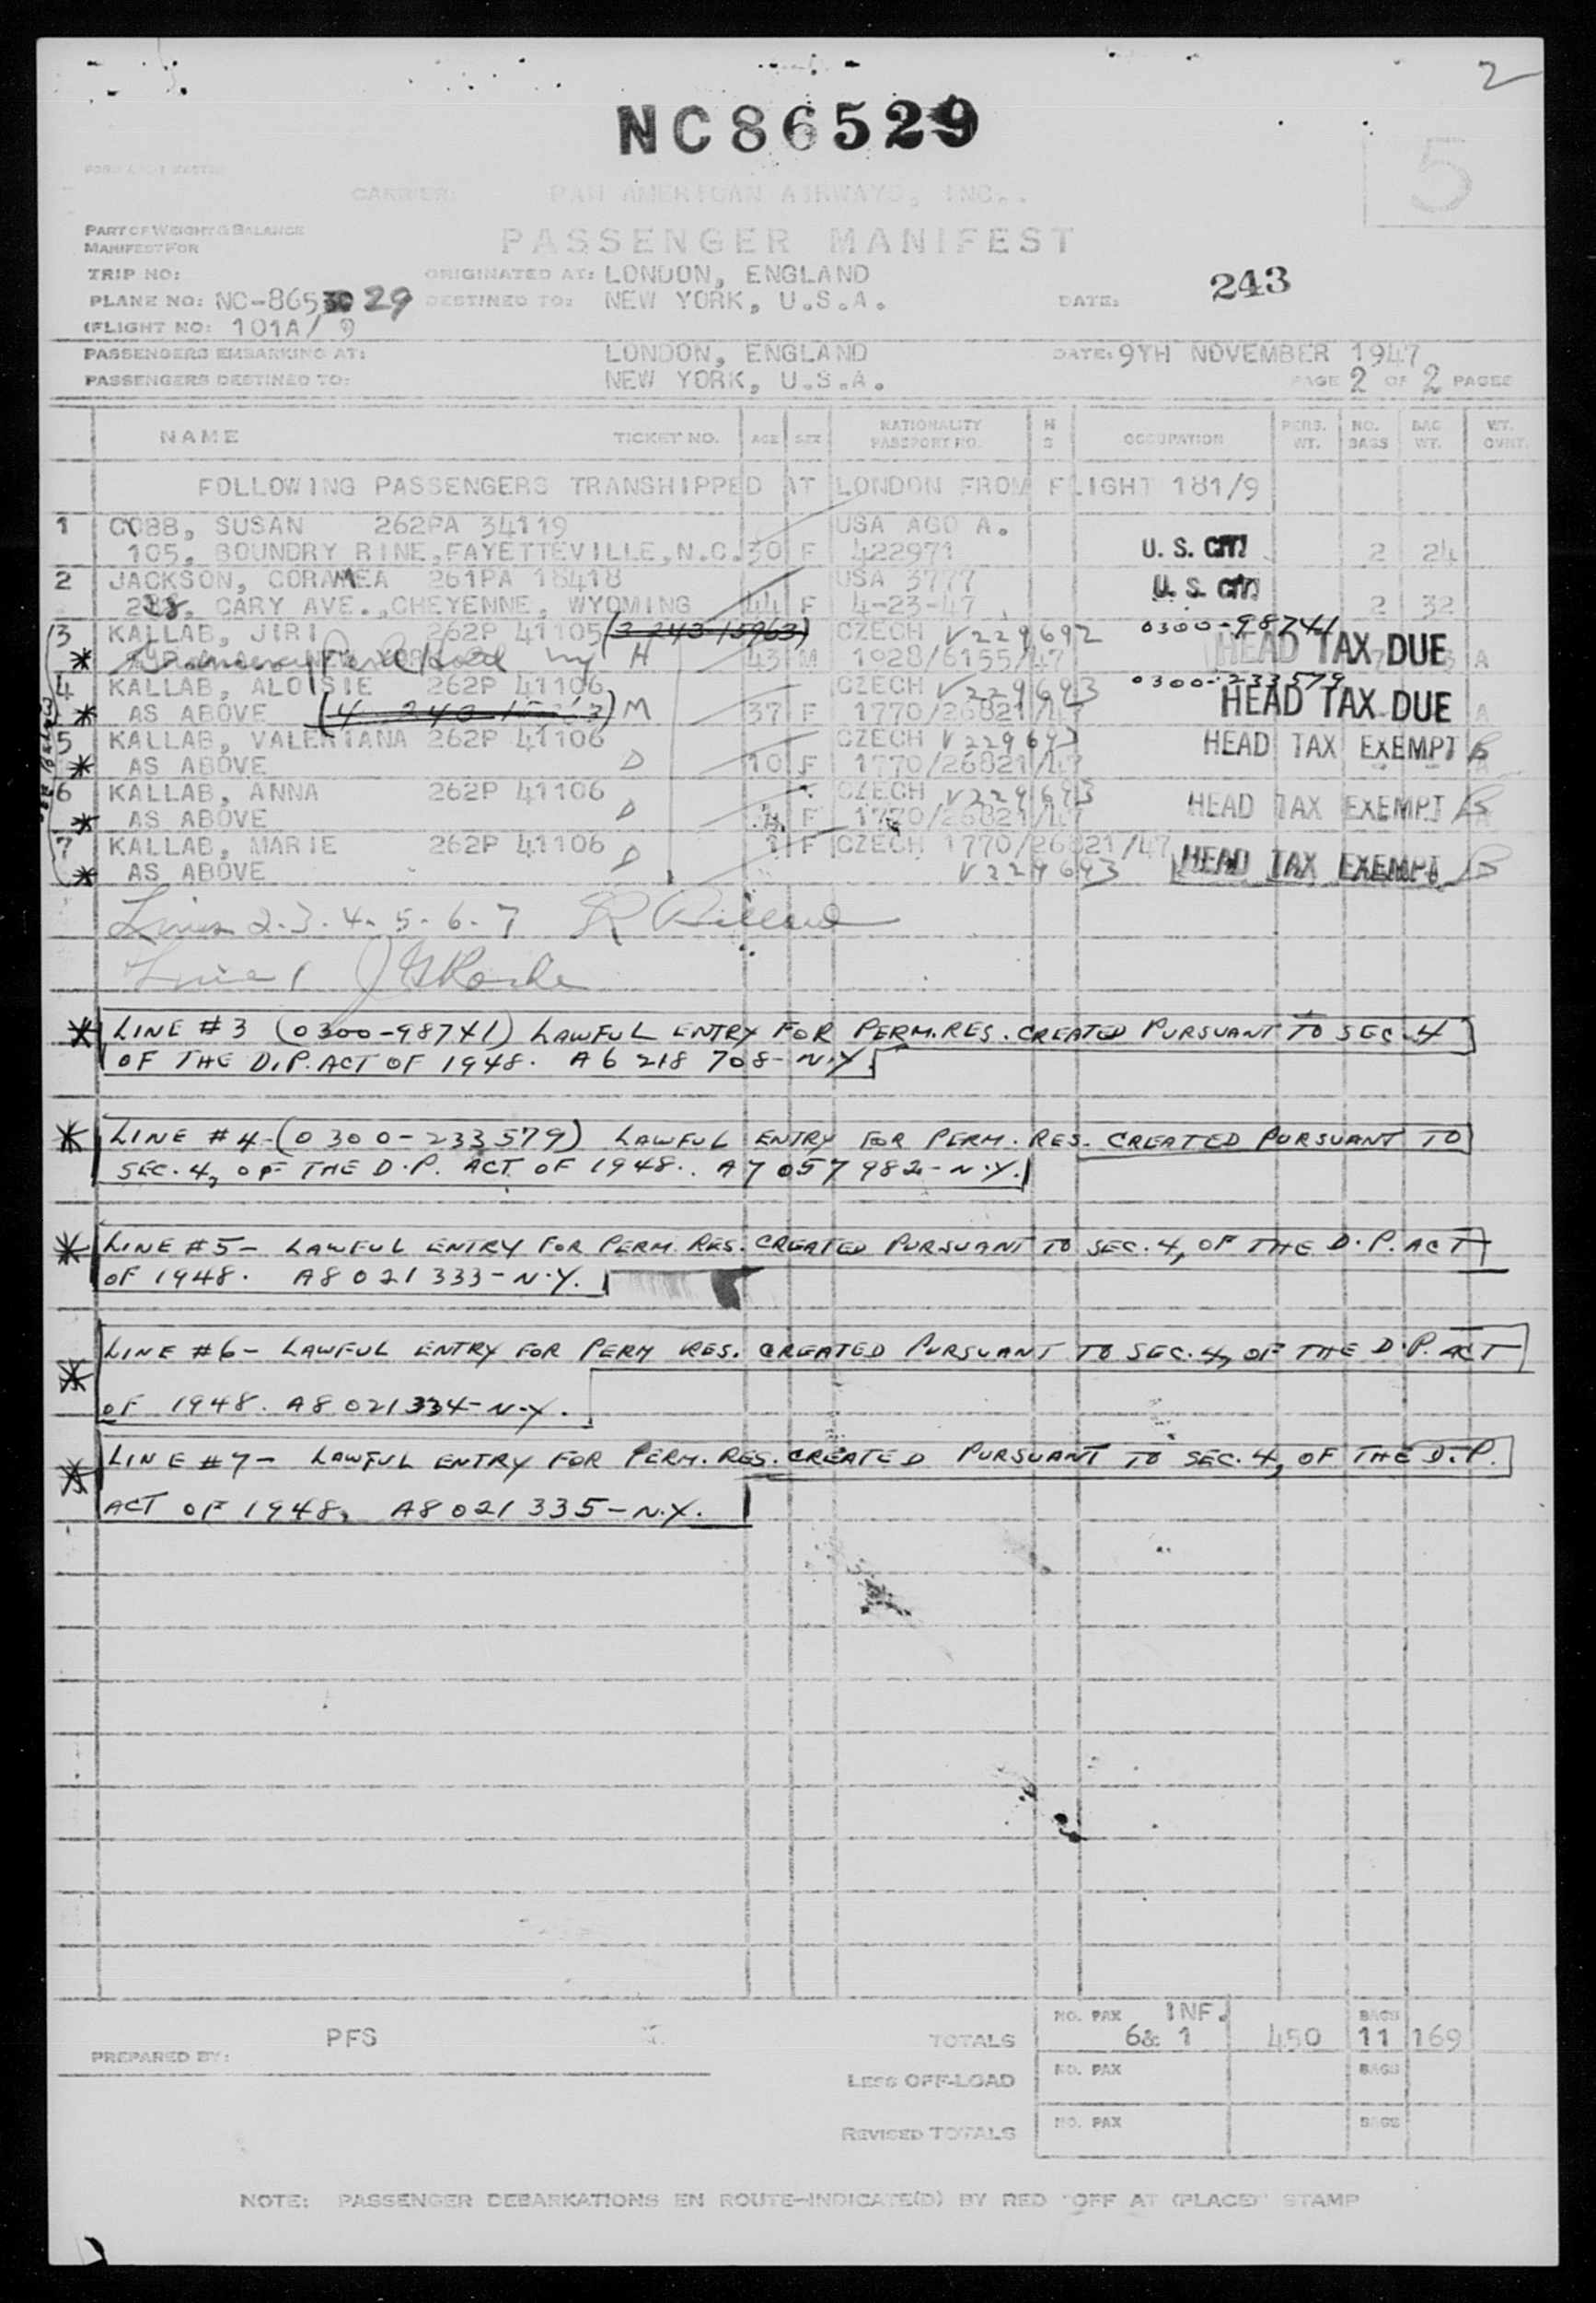 2
NC86529
5
CARRIER: PAN AMERICAN AIRWAYS, INC.
PART OF WEIGHT & BALANCE
MANIFEST FOR
PASSENGER MANIFEST
TRIP NO: ORIGINATED AT: LONDON, ENGLAND 243
PLANE NO: NC-86530 29 DESTINED TO: NEW YORK, U.S.A. DATE:
(FLIGHT NO: 101A/ 9
PASSENGERS EMBARKING AT: LONDON, ENGLAND DATE: 9TH NOVEMBER 1947
PASSENGERS DESTINED TO: NEW YORK, U.S.A. PAGE 2 OF 2 PAGES
NAME TICKET NO. AGE SEX NATIONALITY PASSPORT NO. OCCUPATION PERS. WT. NO. BAGS BAG WT.
FOLLOWING PASSENGERS TRANSHIPPED AT LONDON FROM FLIGHT 181/9
1 COBB, SUSAN 262PA 34119 USA AGO A.
105, BOUNDRY RINE, FAYETTEVILLE, N.C. 30 F 422971 U. S. CIT. 2 24
2 JACKSON, CORAMEA 261PA 18418 USA 3777 U. S. CIT.
CARY AVE., CHEYENNE, WYOMING 44 F 4-23-47 2 32
3 KALLAB, JIRI 262P 41105 (3 243 15963) CZECH V229692 0300-98741
* NY H 43 M 1028/6155/47 HEAD TAX DUE A
4 KALLAB, ALOISIE 262P 41106 CZECH V229693 0300-233579
* AS ABOVE M 37 F 1770/26821/47 HEAD TAX DUE A
5 KALLAB, VALERIANA 262P 41106 CZECH V229693 HEAD TAX EXEMPT
* AS ABOVE D 10 F 1770/26821/47
6 KALLAB, ANNA 262P 41106 CZECH V229693 HEAD TAX EXEMPT
* AS ABOVE D F 1770/26821/47
7 KALLAB, MARIE 262P 41106 D 1 F CZECH 1770/26821/47
* AS ABOVE V229693 HEAD TAX EXEMPT
Lines 2-3-4-5-6-7
Line 1
* LINE #3 (0300-98741) LAWFUL ENTRY FOR PERM.RES. CREATED PURSUANT TO SEC. 4
OF THE D.P. ACT OF 1948. A6 218 708-N.Y.
* LINE #4-(0300-233579) LAWFUL ENTRY FOR PERM. RES. CREATED PURSUANT TO
SEC. 4, OF THE D.P. ACT OF 1948. A7 057 982-N.Y.
* LINE #5- LAWFUL ENTRY FOR PERM. RES. CREATED PURSUANT TO SEC. 4, OF THE D.P. ACT
OF 1948. A8 021 333-N.Y.
* LINE #6- LAWFUL ENTRY FOR PERM RES. CREATED PURSUANT TO SEC. 4, OF THE D.P. ACT
OF 1948. A8 021334-N.Y.
* LINE #7- LAWFUL ENTRY FOR PERM. RES. CREATED PURSUANT TO SEC. 4, OF THE D.P.
ACT OF 1948, A8 021 335-N.Y.
NO. PAX INF. BAGS
PREPARED BY: PFS TOTALS 6& 1 450 11 169
LESS OFF-LOAD NO. PAX BAGS
REVISED TOTALS NO. PAX BAGS
NOTE: PASSENGER DEBARKATIONS EN ROUTE-INDICATE(D) BY RED "OFF AT (PLACE)" STAMP